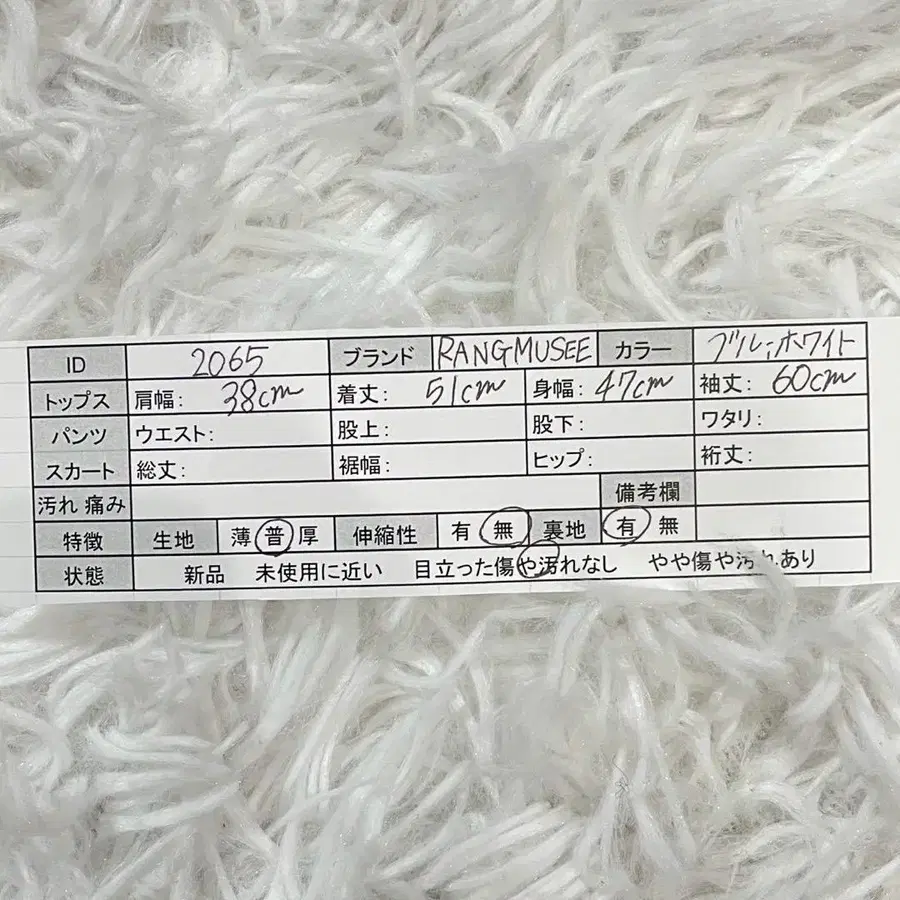 ID 2065 ブランド RANGMUSEE カラー ブルーホワイト
トップス 肩幅: 38cm 着丈: 51cm 身幅: 47cm 袖丈: 60cm
パンツ ウエスト: 股上: 股下: ワタリ:
スカート 総丈: 裾幅: ヒップ: 裄丈:
汚れ 痛み 備考欄
特徴 生地 薄 普 厚 伸縮性 有 無 裏地 有 無
状態 新品 未使用に近い 目立った傷や汚れなし やや傷や汚れあり